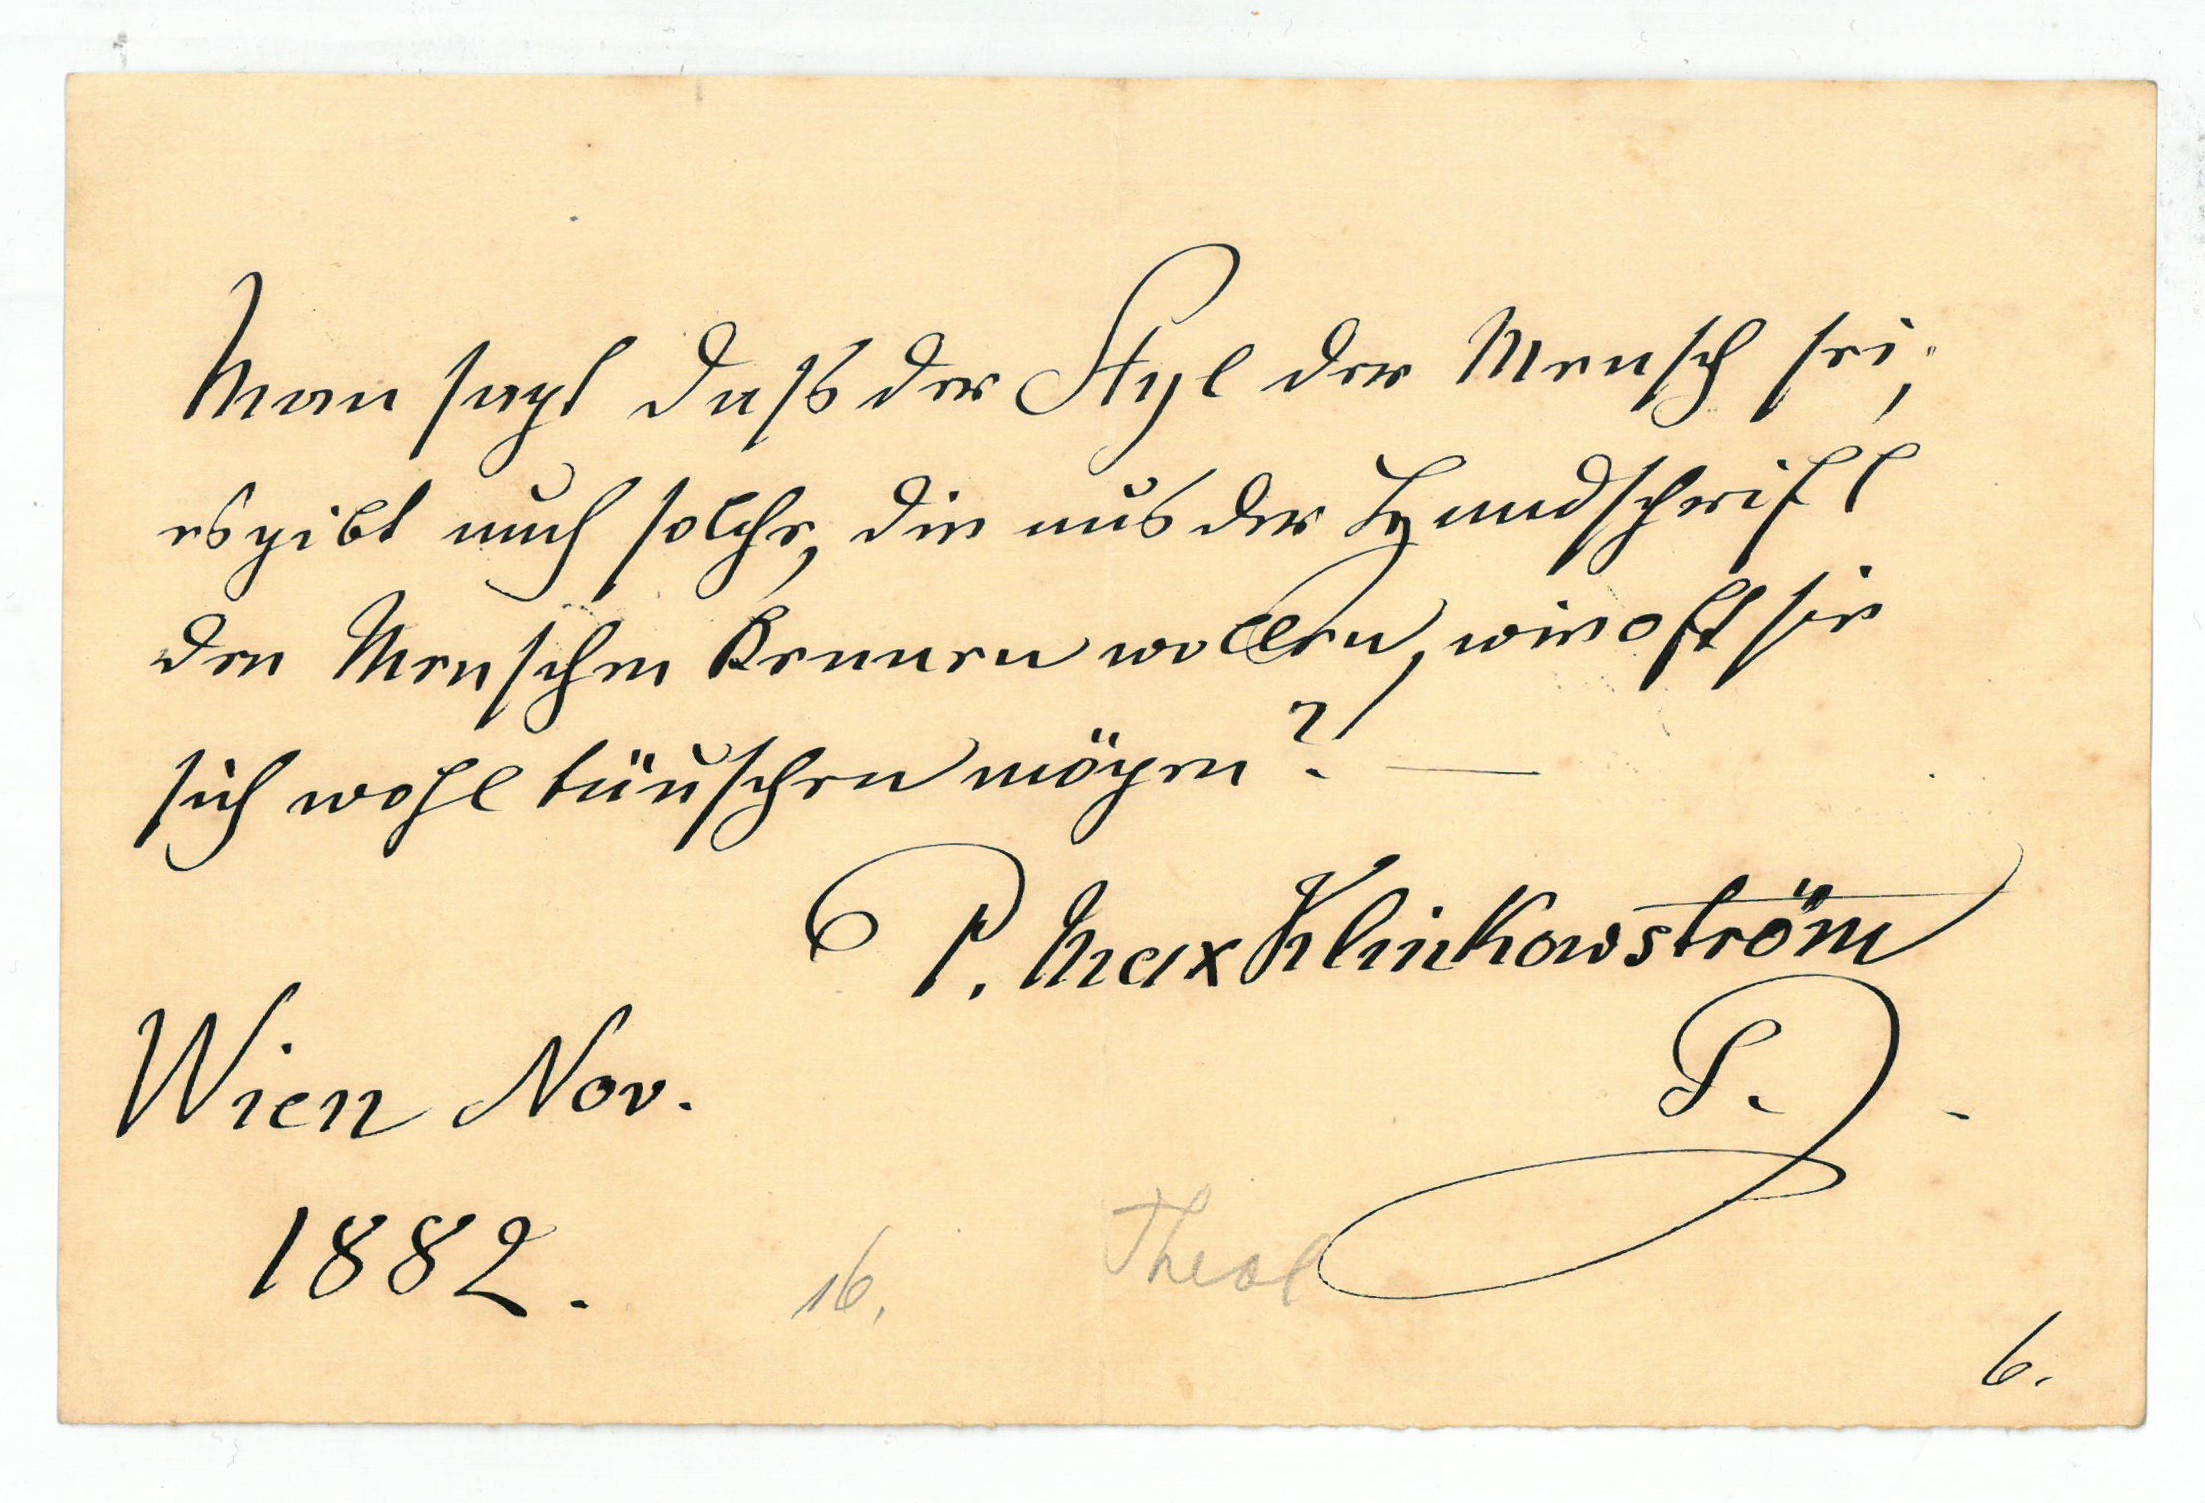 Man sagt daß der Styl der Mensch sei;
es gibt auch solche, die aus der Handschrift
den Menschen kennen wollen, wie oft sie
sich wohl täuschen mögen? —
P. Max Klinkowström
S. J.
Wien Nov.
1882.
16.
Theol
6.